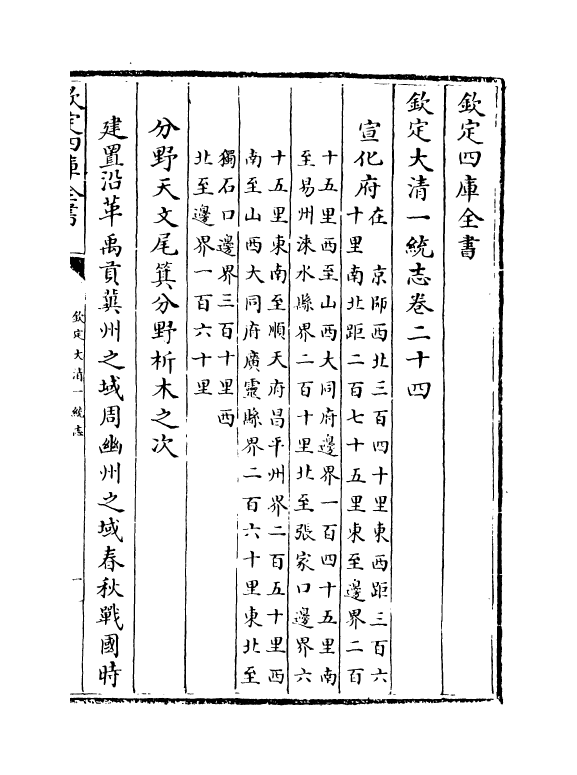 欽定四庫全書
欽定大清一統志卷二十四
宣化府在　京師西北三百四十里東西距三百六
十里南北距二百七十五里東至邊界二百
十五里西至山西大同府邊界一百四十五里南
至易州淶水縣界二百十里北至張家口邊界六
十五里東南至順天府昌平州界二百五十里西
南至山西大同府廣靈縣界二百六十里東北至
獨石口邊界三百十里西
北至邊界一百六十里
分野天文尾箕分野析木之次
建置沿革禹貢冀州之域周幽州之域春秋戰國時
欽定四庫全書
欽定大清一統志
一